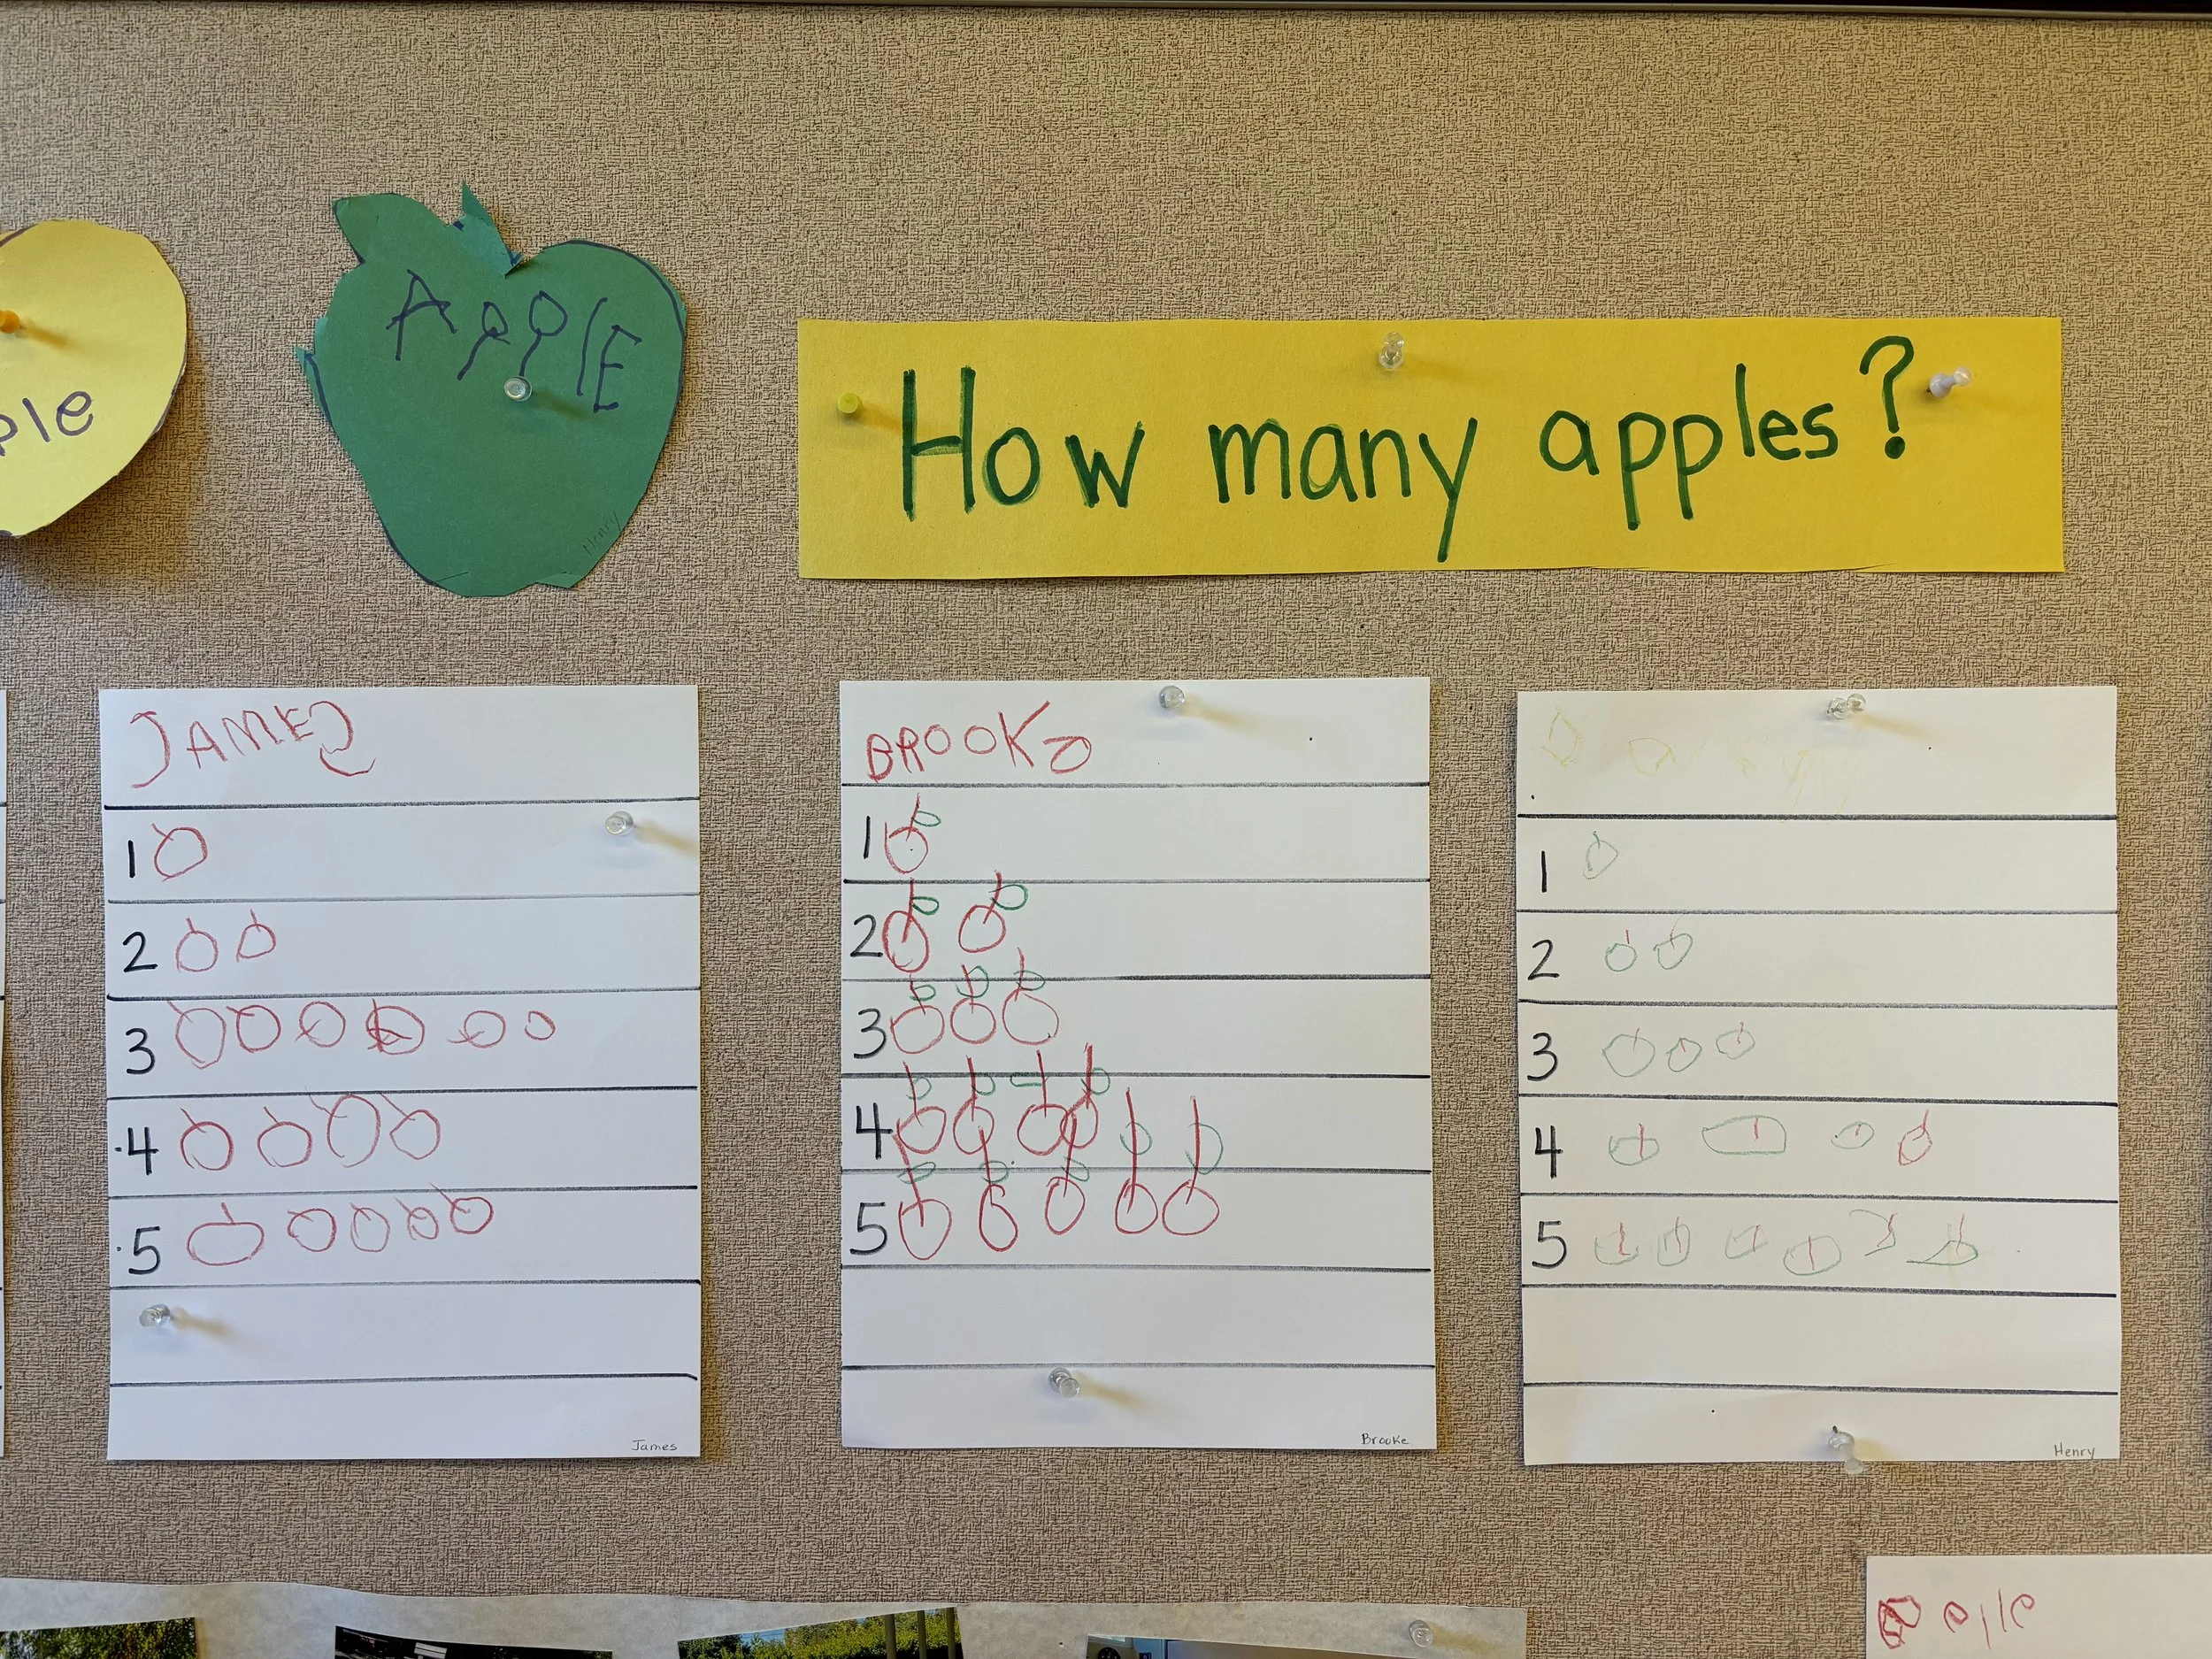 APPlE
Henry
ple
How many apples?
JAMES
1
2
3
4
5
James
BROOKe
1
2
3
4
5
Brooke
1
2
3
4
5
Henry